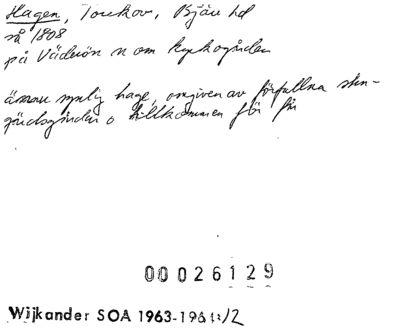 Hagen, Torekov, Bjäre hd
så 1808
på Väderön n om kyrkogården
ännu synlig hage, omgiven av förfallna sten-
gärdsgårdar o tillkommen för får
00026129
Wijkander SOA 1963-196 /2